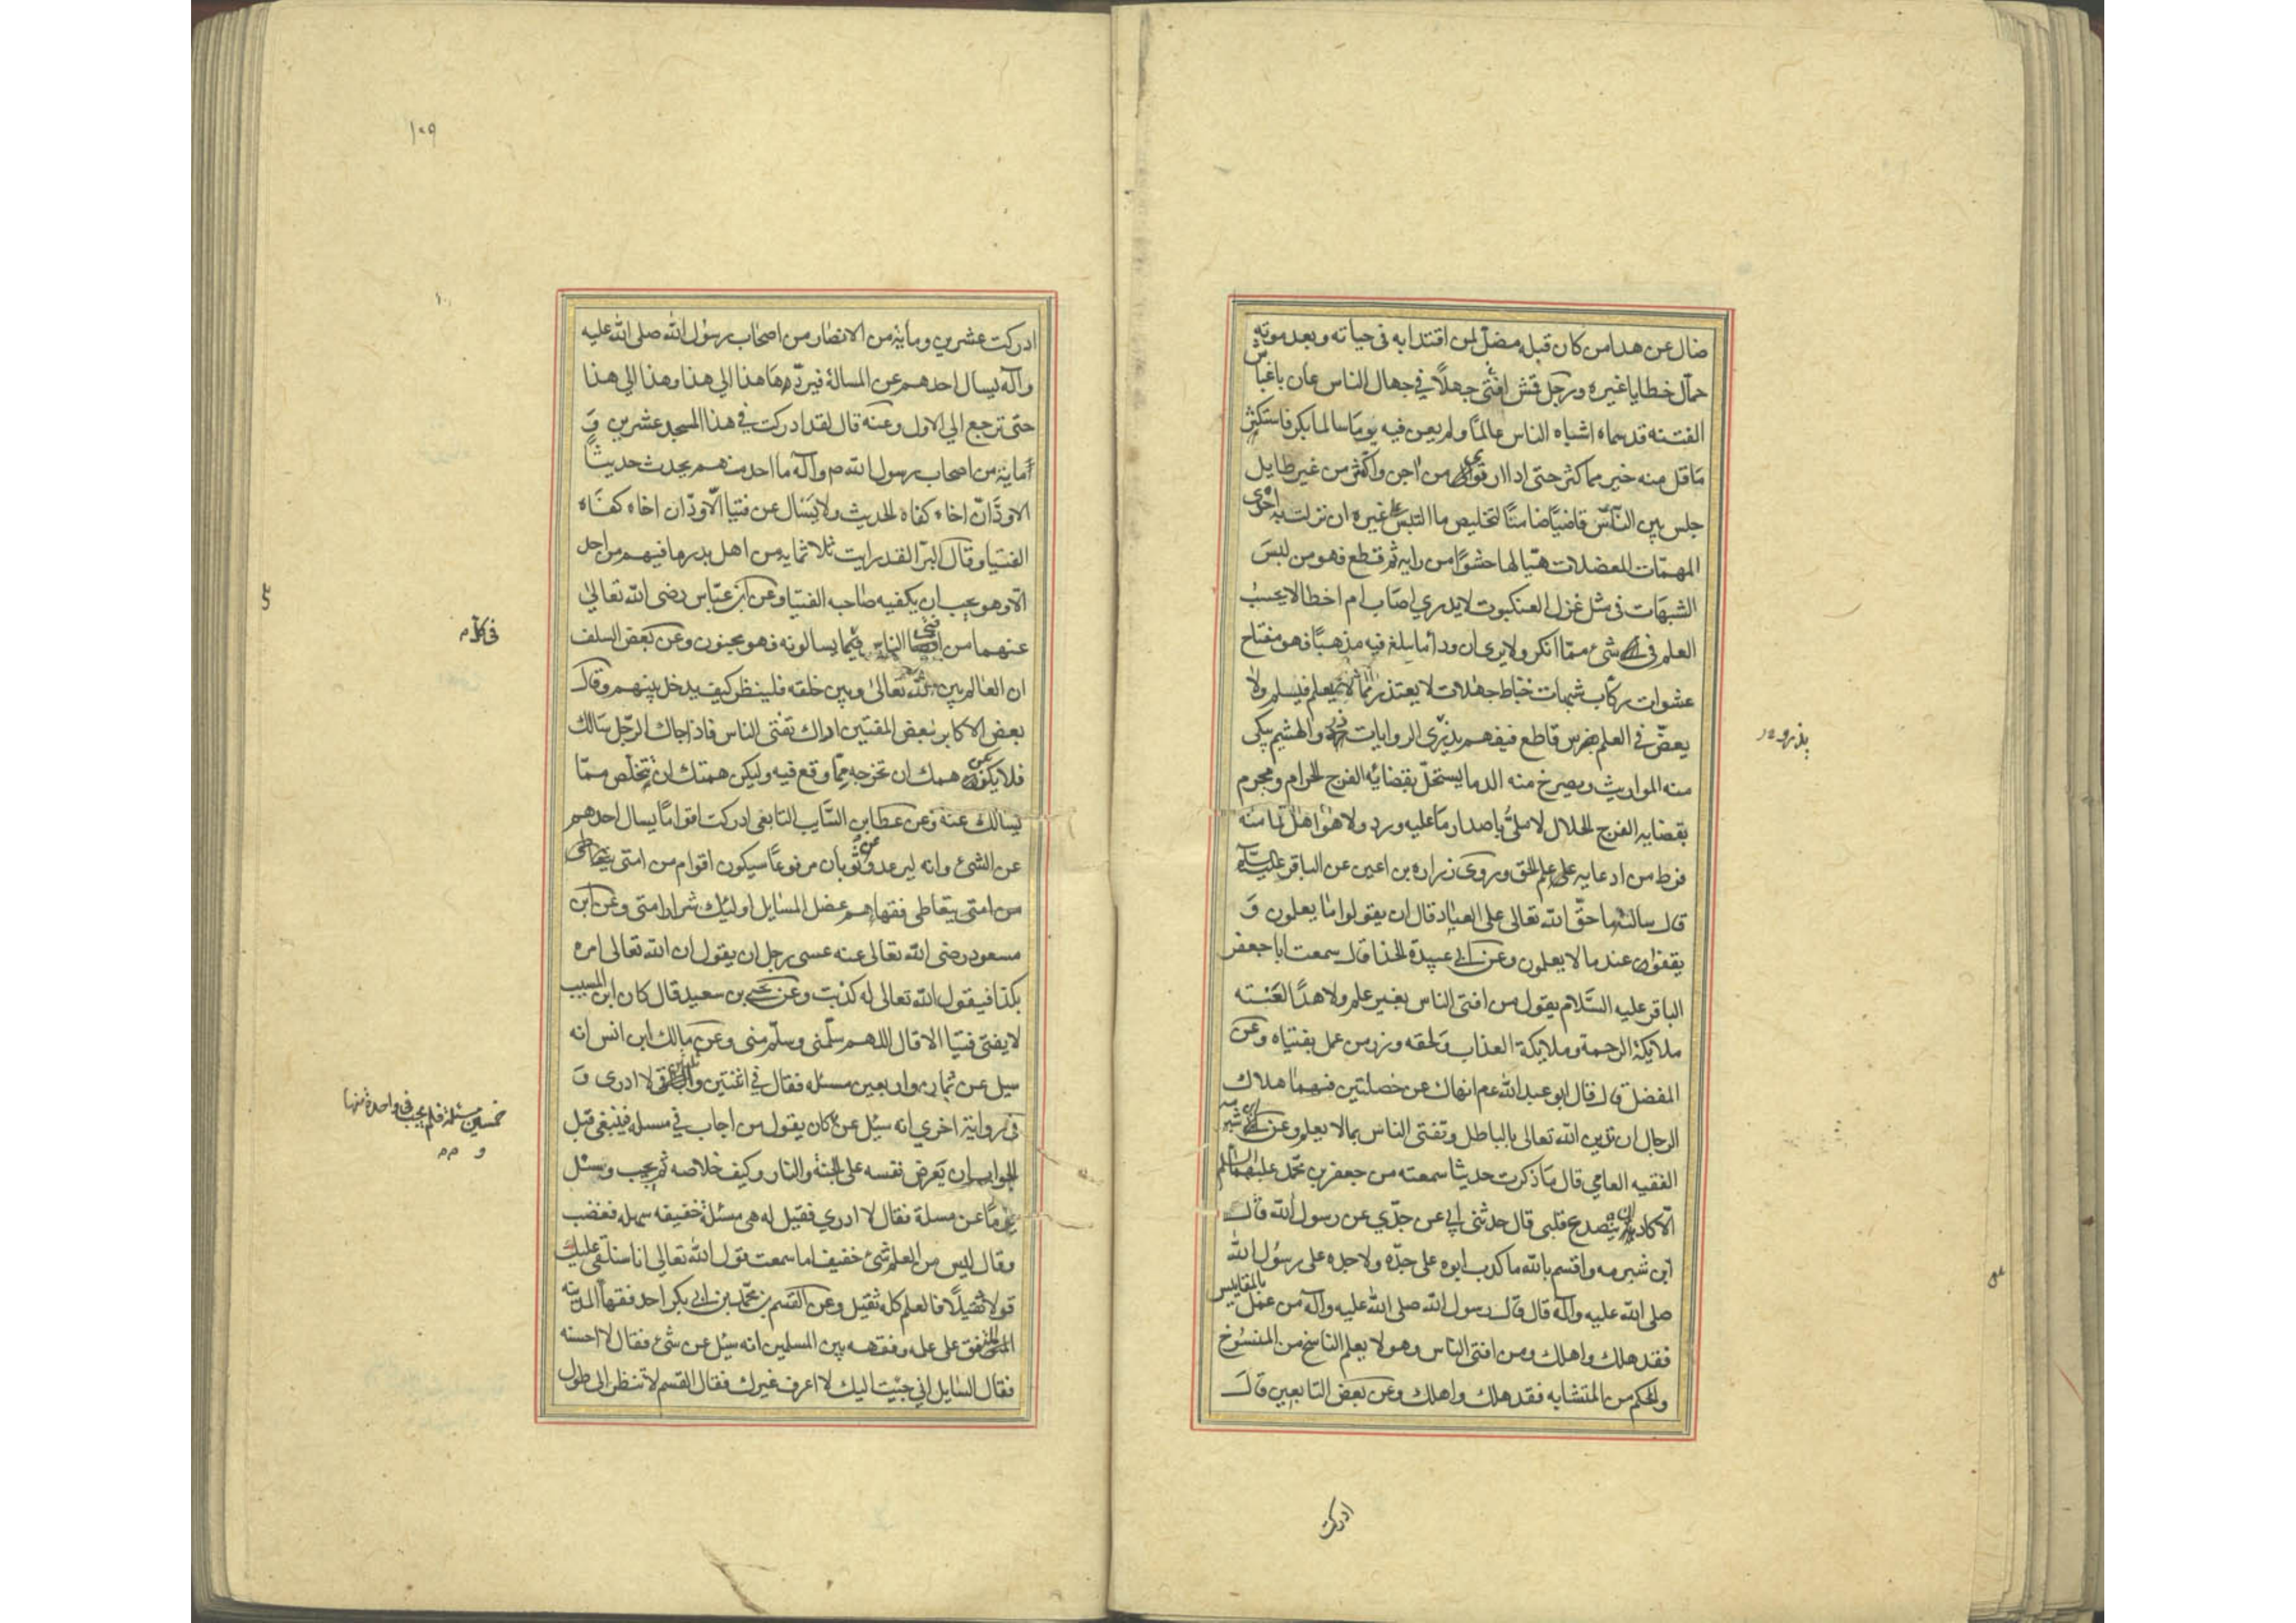 ضال عن هدا من كان قبله مضل لمن اقتدا به فى حياته وبعد موته
حمال خطايا غيره ورجل قش افتى جهلا في جهال الناس عان باغباش
الفتنه قد سماه اشباه الناس عالما ولم يعن فيه يوما سالما بكر فاستكثر
ما قل منه خير مما كثر حتى ادا ارتوى من اجن واكثر من غير طايل
جلس بين الناس قاضيا ضامنا لتخليص ما التبس على غيره ان نزلت به احدى
المهمات المعضلات هيا لها حشوا من رايه ثم قطع فهو من لبس
الشبهات فى مثل غزل العنكبوت لا يدري اصاب ام اخطا لا يحسب
العلم فى شئ مما انكر ولا يرى ان وراء ما بلغ فيه مذهبا فهو مفتاح
عشوات ركاب شبهات خباط جهلات لا يعتذر مما لا يعلم فيسلم ولا
يعض في العلم بضرس قاطع فيفهم يذري الروايات ذرو الهشيم تبكى
منه المواريث وتصرخ منه الدما يستحل بقضائه الفرج الحرام ويحرم
بقضايه الفرج الحلال لا ملئ باصدار ما عليه ورد ولا هو اهل لما منه
فرط من ادعايه على علم الحق وروى زراره بن اعين عن الباقر عليه السلام
قال سالته ما حق الله تعالى على العباد قال ان يقولوا ما يعلمون و
يقفوا عند ما لا يعلمون وعن ابى عبيدة الحذا قال سمعت ابا جعفر
الباقر عليه السلام يقول من افتى الناس بغير علم ولا هدا لعنته
ملايكة الرحمة وملايكة العذاب ولحقه وزر من عمل بفتياه وعن
المفضل قال قال ابو عبد الله عم انهاك عن خصلتين فيهما هلاك
الرجال ان تدين الله تعالى بالباطل وتفتى الناس بما لا يعلم وعن ابن شبرمه
الفقيه العامي قال ما ذكرت حديثا سمعته من جعفر بن محمد عليهما السلم
الا كاد ان يتصدع قلبى قال حدثنى ابى عن جدي عن رسول الله قال
ابن شبرمه واقسم بالله ما كدب ابوه على جده ولا جده على رسول الله
صلى الله عليه وآله قال قال رسول الله صلى الله عليه وآله من عمل بالمقاييس
فقد هلك واهلك ومن افتى الناس وهو لا يعلم الناسخ من المنسوخ
والمحكم من المتشابه فقد هلك واهلك وعن بعض التابعين قال
ادركت
١٠٩
ادركت عشرين ومأية من الانصار من اصحاب رسول الله صلى الله عليه
وآله يسال احدهم عن المسالة فيردها هذا الي هذا وهذا الي هذا
حتى ترجع الي الاول وعنه قال لقد ادركت في هذا المسجد عشرين و
مأية من اصحاب رسول الله ص وآله ما احد منهم يحدث حديثا
الا ود ان اخاه كفاه الحديث ولا يسال عن فتيا الا ود ان اخاه كفاه
الفتيا وقال البرا لقد رايت ثلاثمايه من اهل بدر ما فيهم من احد
الا وهو يحب ان يكفيه صاحبه الفتيا وعن ابن عباس رضى الله تعالي
عنهما من افتى الناس فيما يسالونه فهو مجنون وعن بعض السلف
فى كل م
ان العالم بين الله تعالى وبين خلقه فلينظر كيف يدخل بينهم وقال
بعض الاكابر لبعض المفتين اراك تفتى الناس فاذا جاك الرجل يسالك
فلا يكن همك ان تخرجه مما وقع فيه وليكن همتك ان تتخلص مما
يسالك عنه وعن عطا بن السايب التابعى ادركت اقواما يسال احدهم
عن الشئ وانه ليرعد وعن ثوبان مرفوعا سيكون اقوام من امتى يتعاطى
من امتى يتعاطى فقهاءهم عضل المسايل اوليك شرار امتى وعن ابن
مسعود رضى الله تعالى عنه عسى رجل ان يقول ان الله تعالى امر
بكذا فيقول الله تعالى له كذبت وعن يحيى بن سعيد قال كان ابن المسيب
لا يفتى فتيا الا قال اللهم سلمنى وسلم منى وعن مالك ابن انس انه
سيل عن ثمان واربعين مسئله فقال في اثنتين وثلاثين لا ادرى و
فى رواية اخري انه سيل عن كان يقول من اجاب في مسله فينبغى قبل
خمسين مسئلة فلم يجب فى واحدة منها
و
الجواب ان يعرض نفسه على الجنة والنار وكيف خلاصه ثم يجيب وسئل
يوما عن مسلة فقال لا ادري فقيل له هى مسئلة خفيفه سهله فغضب
وقال ليس من العلم شئ خفيف اما سمعت قول الله تعالى انا سنلقى عليك
قولا ثقيلا فالعلم كله ثقيل وعن القسم بن محمد بن ابى بكر احد فقها المدينه
المتفق على علمه وفقهه بين المسلمين انه سيل عن شئ فقال لا احسنه
فقال السايل انى جيت اليك لا اعرف غيرك فقال القسم لا تنظر الى طول